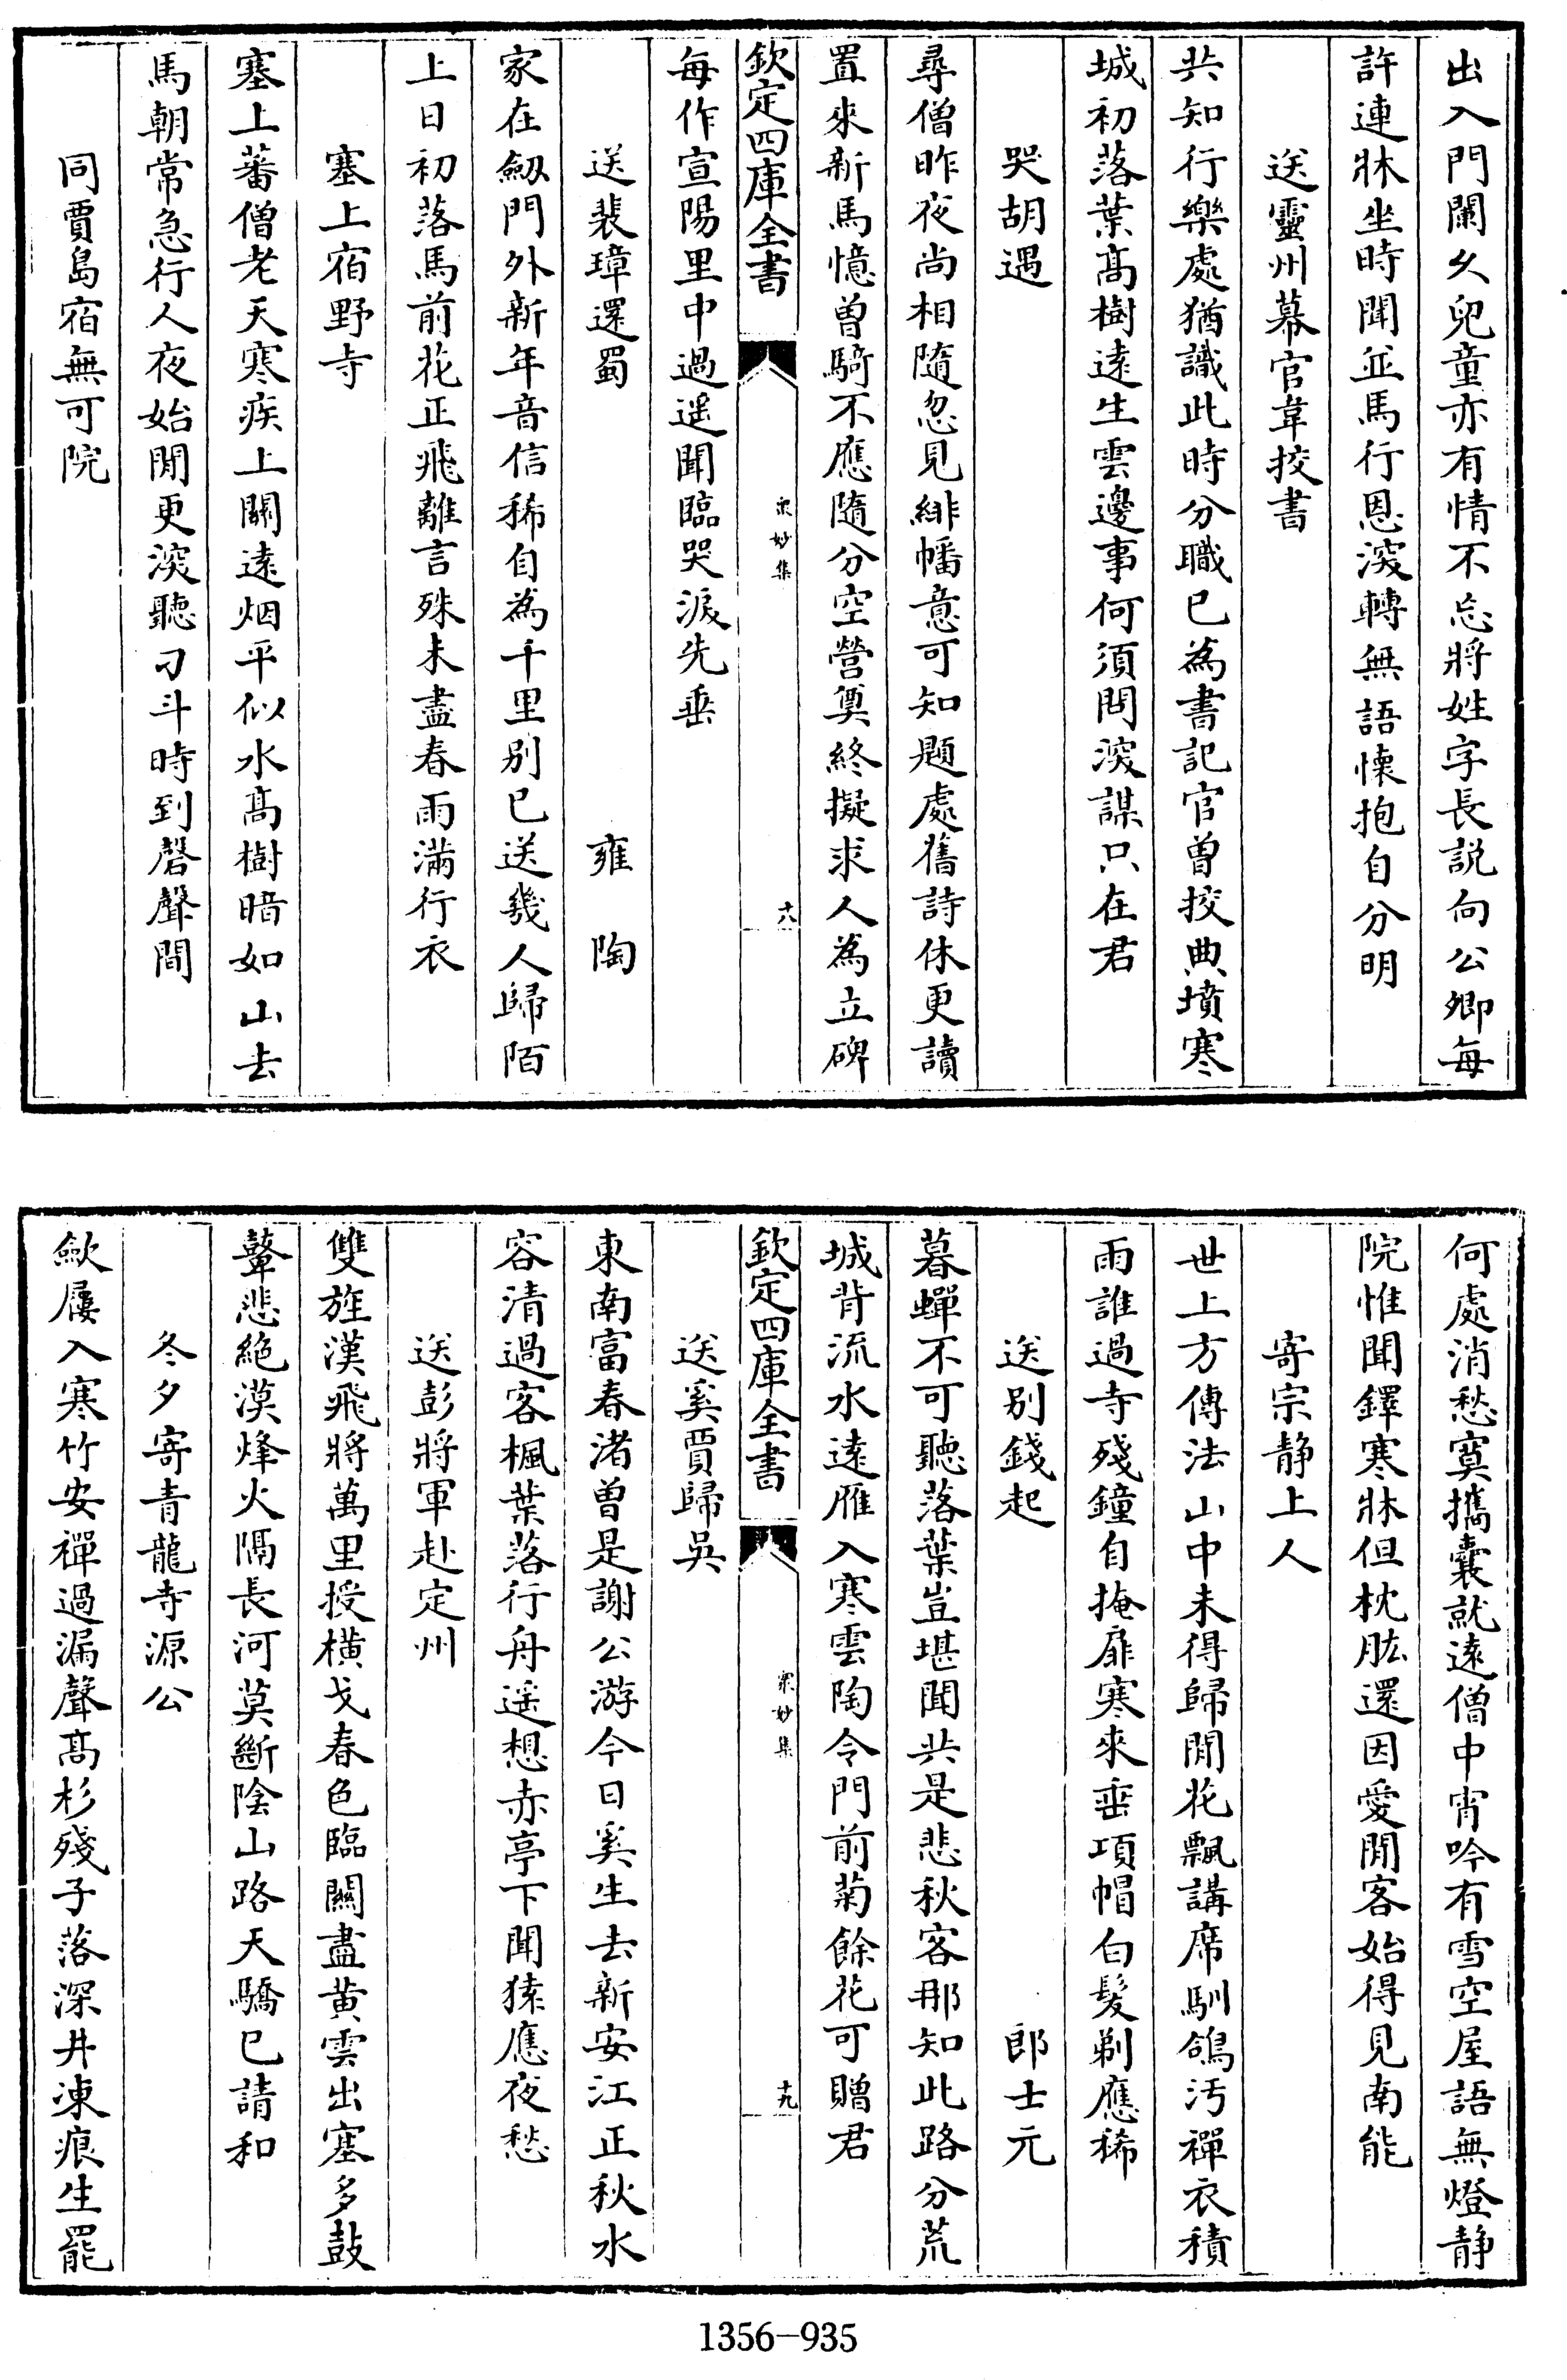 出入門闌久兒童亦有情不忘將姓字長説向公卿每
許連牀坐時聞並馬行恩深轉無語懐抱自分明
送靈州幕官韋挍書
共知行樂處猶識此時分職已為書記官曾挍典墳寒
城初落葉髙樹逺生雲邊事何須問深謀只在君
哭胡遇
尋僧昨夜尚相隨忽見緋幡意可知題處舊詩休更讀
置來新馬憶曽騎不應隨分空營奠終擬求人為立碑
欽定四庫全書
衆妙集
十八
每作宣陽里中過遥聞臨哭淚先垂
送裴璋還蜀
雍陶
家在劔門外新年音信稀自為千里别已送幾人歸陌
上日初落馬前花正飛離言殊未盡春雨滿行衣
塞上宿野寺
塞上蕃僧老天寒疾上關逺烟平似水髙樹暗如山去
馬朝常急行人夜始閒更深聽刁斗時到磬聲間
同賈島宿無可院
何處消愁寞攜囊就逺僧中宵吟有雪空屋語無燈静
院惟聞鐸寒牀但枕肱還因愛閒客始得見南能
寄宗静上人
世上方傳法山中未得歸閒花飄講席馴鴿汚禪衣積
雨誰過寺殘鐘自掩扉寒來垂項帽白髪剃應稀
送别錢起
郎士元
暮蟬不可聽落葉豈堪聞共是悲秋客那知此路分荒
城背流水逺雁入寒雲陶令門前菊餘花可贈君
欽定四庫全書
衆妙集
十九
送奚賈歸吳
東南富春渚曽是謝公游今日奚生去新安江正秋水
容清過客楓葉落行舟遥想赤亭下聞猿應夜愁
送彭將軍赴定州
雙旌漢飛將萬里授横戈春色臨關盡黄雲出塞多鼓
鼙悲絶漠烽火隔長河莫斷陰山路天驕已請和
冬夕寄青龍寺源公
歛屨入寒竹安禪過漏聲髙杉殘子落深井凍痕生罷
1356-935